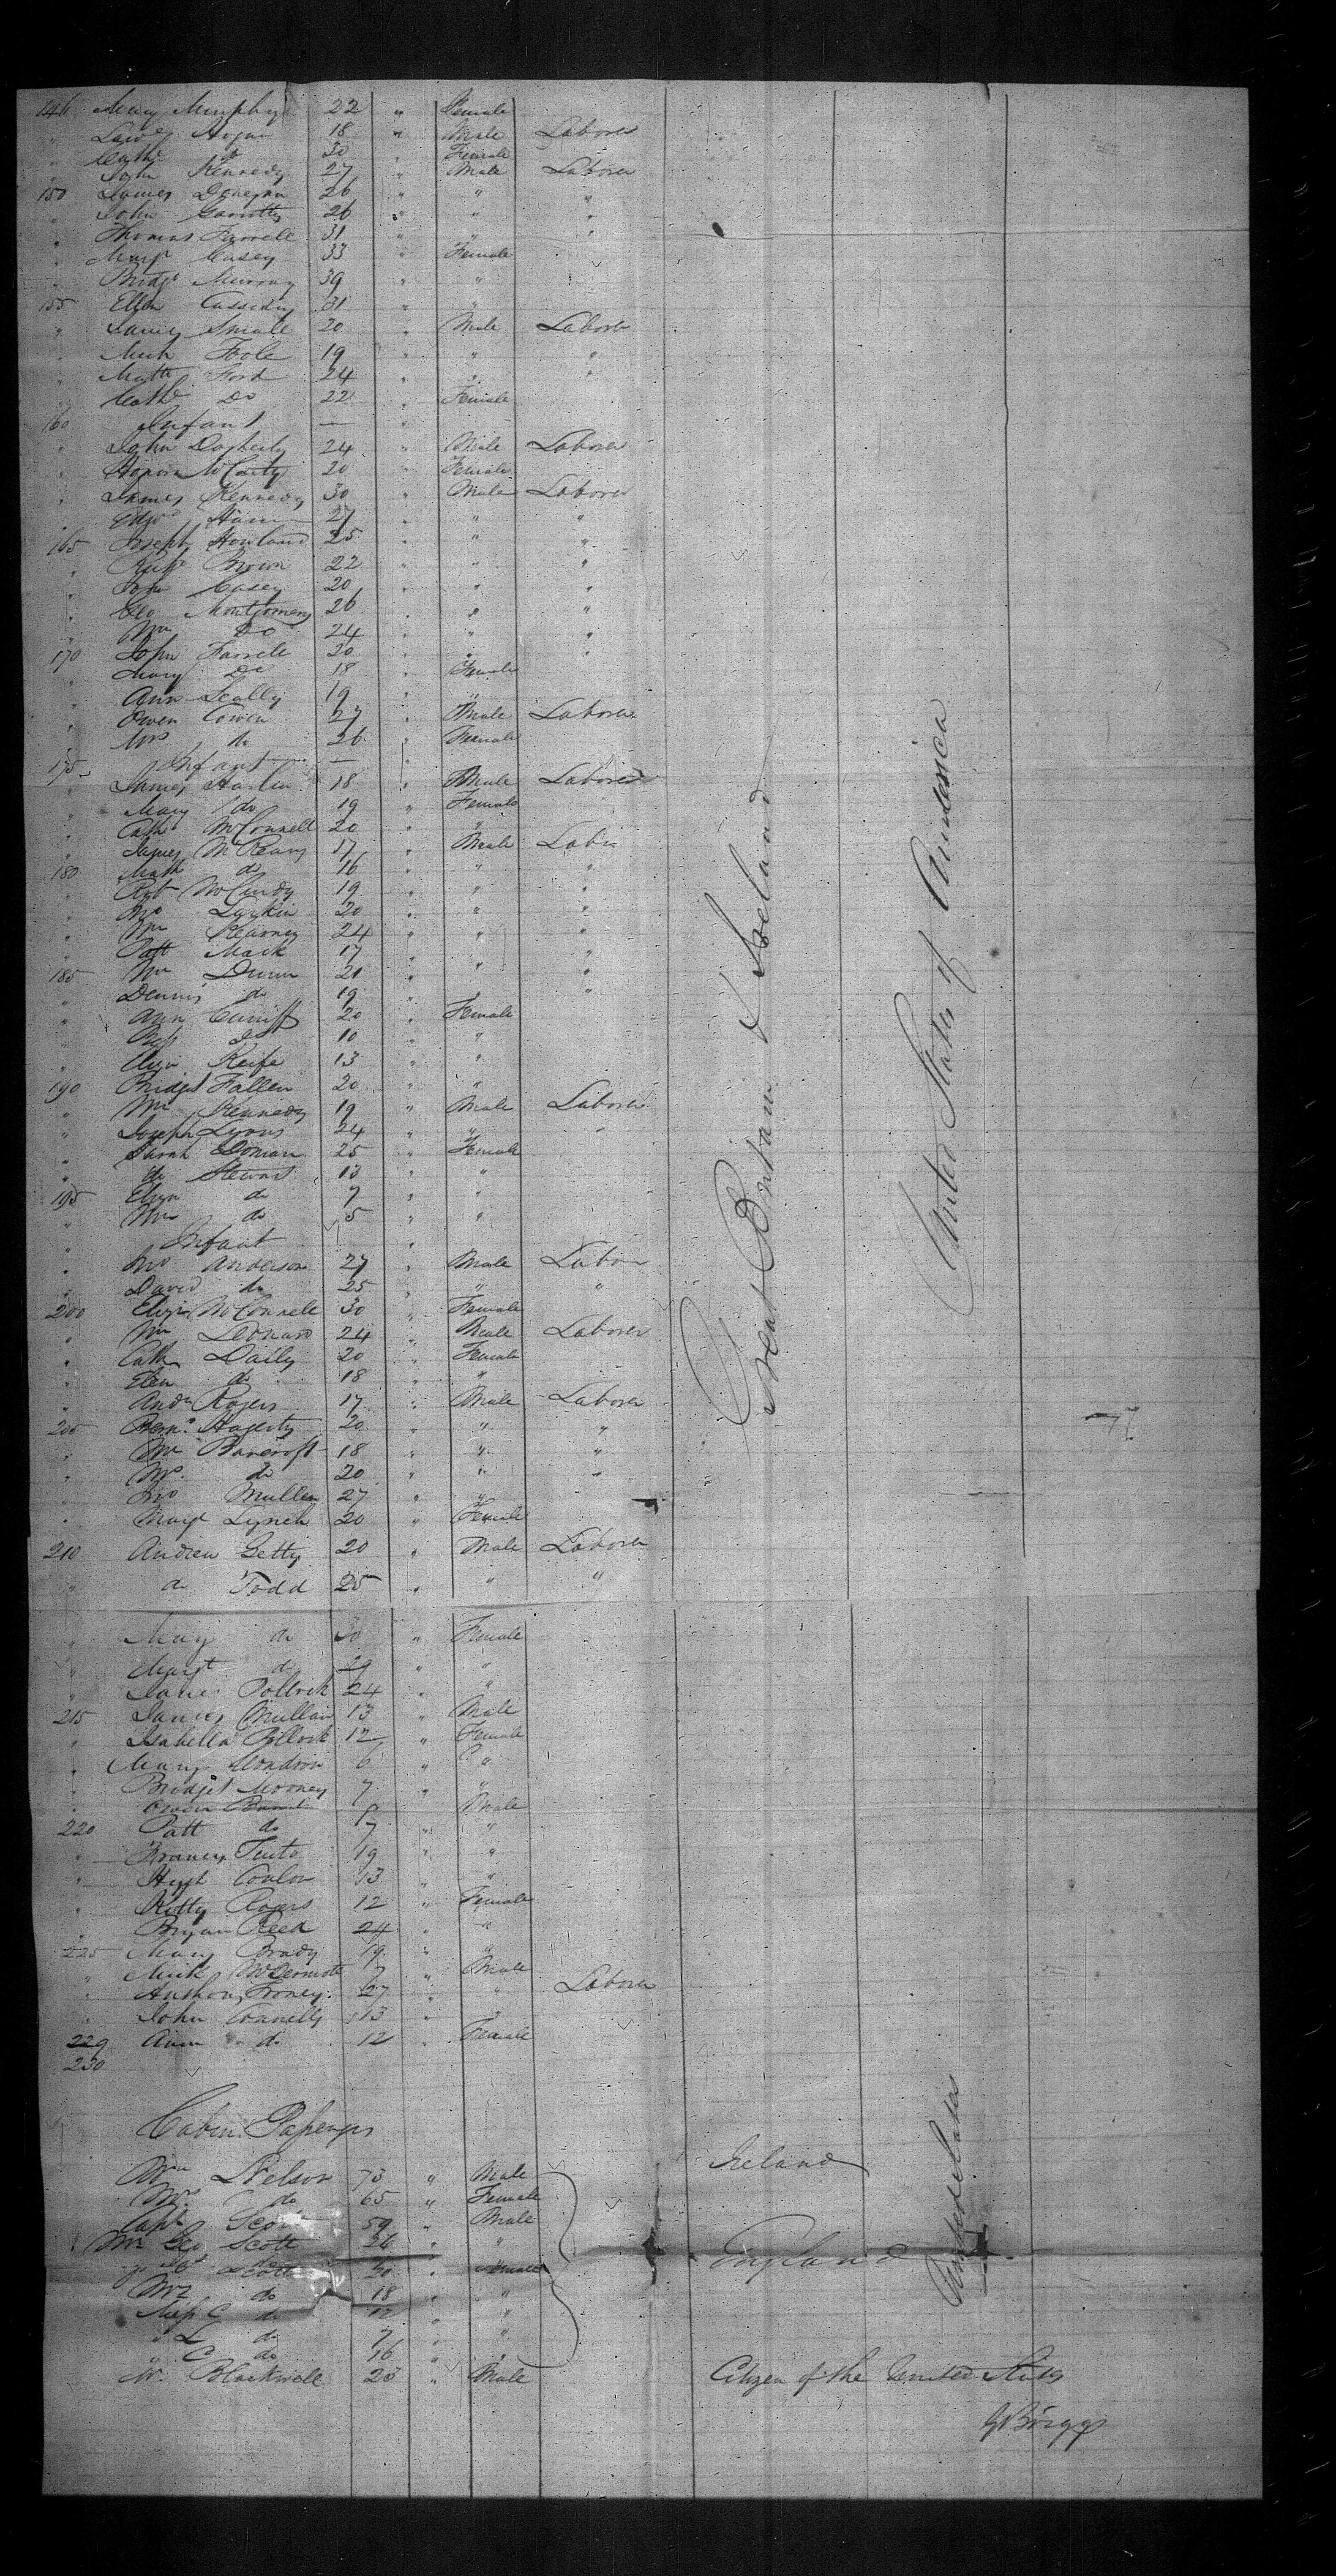 146 Mary Murphy 22 " Female
" Lawe Hogan 18 " Male Laborer
" Cathe do 30 " Female
" John Kennedy 27 " Male Laborer
150 James Donegan 26 " " "
" John Garrotty 26 " " "
" Thomas Farrell 31 " " "
" Margt Casey 33 " Female
" Bridgt Murray 39 " "
155 Ellen Cassidy 31 " "
" James Smale 20 " Male Laborer
" Mich Toole 19 " " "
" Matt Ford 24 " " "
" Cathe Do 22 " Female
160 Infant — "
" John Dogherty 24 " Male Laborer
" Honora McCarty 20 " Female
" James Kennedy 30 " Male Laborer
" Edwd 27 " " "
165 Joseph Howland 25 " " "
" Brown 22 " " "
" John Casey 20 " " "
" Geo Montgomery 26 " " "
" Wm Do 24 " " "
170 John Farrell 20 " " "
" Mary Do 18 " Female
" Ann Scally 19 " "
" Owen Cowen 27 " Male Laborer
" Mrs do 26 " Female
175 Infant — "
" James Harlin 18 " Male Laborer
" Mary do 19 " Female
" Cath McConnell 20 " "
" James 17 " Male Labr
180 Math do 16 " " "
" Robt McCurdy 19 " " "
" Jno Larkin 20 " " "
" Wm Kearney 24 " " "
" Patt Mack 17 " " "
185 Wm Dunn 21 " " "
" Dennis do 19 " " "
" Ann Cunniff 20 " Female
" do 10 " "
" Eliza Keife 13 " "
190 Bridget Fallen 20 " "
" Wm Kennedy 19 " Male Laborer
" Joseph Lyons 24 " " "
" Sarah 25 " Female
" do Stewart 13 " "
195 Eliza do 7 " "
" do 5 " "
" Infant "
" Jno Anderson 27 " Male Labor
" David do 25 " " "
200 Eliza McConnell 30 " Female
" Wm Leonard 24 " Male Laborer
" Cath Daily 20 " Female
" Ellen do 18 " "
" Andw Rogers 17 " Male Laborer
205 Bernd Hagerty 20 " " "
" Wm Bancroft 18 " " "
" do 20 " " "
" Jno Mullen 27 " "
" Margt Lynch 20 " Female
210 Andrew Getty 20 " Male Laborer
" do Todd 25 " " "
" Mary do 30 " Female
" Margt do 29 " "
" Pollock 24 " "
215 James Mullan 13 " Male
" Isabella Pollock 12 " Female
" Mary 6 " "
" Bridget Mooney 7 " "
" Owen Male
220 Patt do 7 " "
" 19 " "
" Hugh Conlon 13 " "
" Kitty Rogers 12 " Female
" Bryan Reed 24 " "
225 Mary Brady 19 " "
" Mick McDermott 7 " Male
" Anthony 27 " " Laborer
" John Connelly 13 " "
229 Ann do 12 " Female
230
Great Britain & Ireland
United States of America
Cabin Passengers
Wm Nelson 73 " Male Ireland
Mrs do 65 " Female
Capt Scott 59 " Male
Mr Geo Scott 26 " "
Scott 30 " Female England
do 18 " "
Miss C do 12 " "
" L do 7 " "
" C do 16 " "
United States
W. Blackwell 23 " Male Citizen of the United States
G Briggs